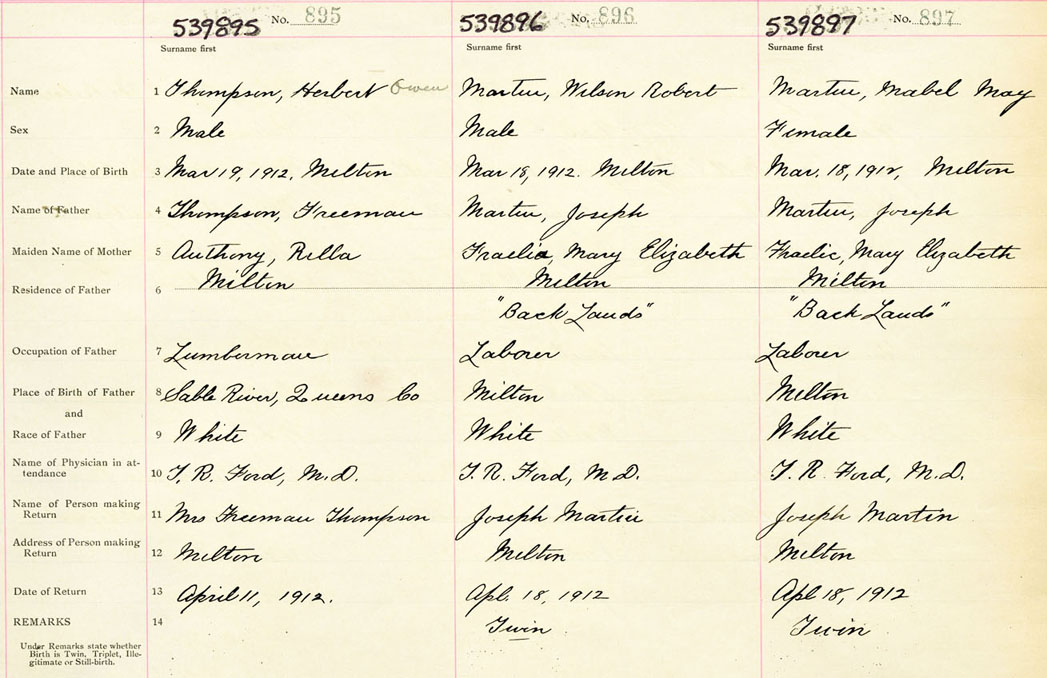 539895 No. 895 539896 No. 896 539897 No. 897
Surname first Surname first Surname first
Name 1 Thompson, Herbert Owen Martin, Wilson Robert Martin, Mabel May
Sex 2 Male Male Female
Date and Place of Birth 3 Mar 19, 1912, Milton Mar 18, 1912. Milton Mar. 18, 1912, Milton
Name of Father 4 Thompson, Freeman Martin, Joseph Martin, Joseph
Maiden Name of Mother 5 Anthony, Rilla Fraelic, Mary Elizabeth Fraelic, Mary Elizabeth
Residence of Father 6 Milton Milton Milton
"Back Lands" "Back Lands"
Occupation of Father 7 Lumberman Laborer Laborer
Place of Birth of Father 8 Sable River, Queens Co Milton Milton
and
Race of Father 9 White White White
Name of Physician in at-
tendance 10 T. R. Ford, M.D. T. R. Ford, M.D. T. R. Ford, M.D.
Name of Person making
Return 11 Mrs Freeman Thompson Joseph Martin Joseph Martin
Address of Person making
Return 12 Milton Milton Milton
Date of Return 13 April 11, 1912. Apl. 18, 1912 Apl 18, 1912
REMARKS 14 Twin Twin
Under Remarks state whether
Birth is Twin, Triplet, Ille-
gitimate or Still-birth.